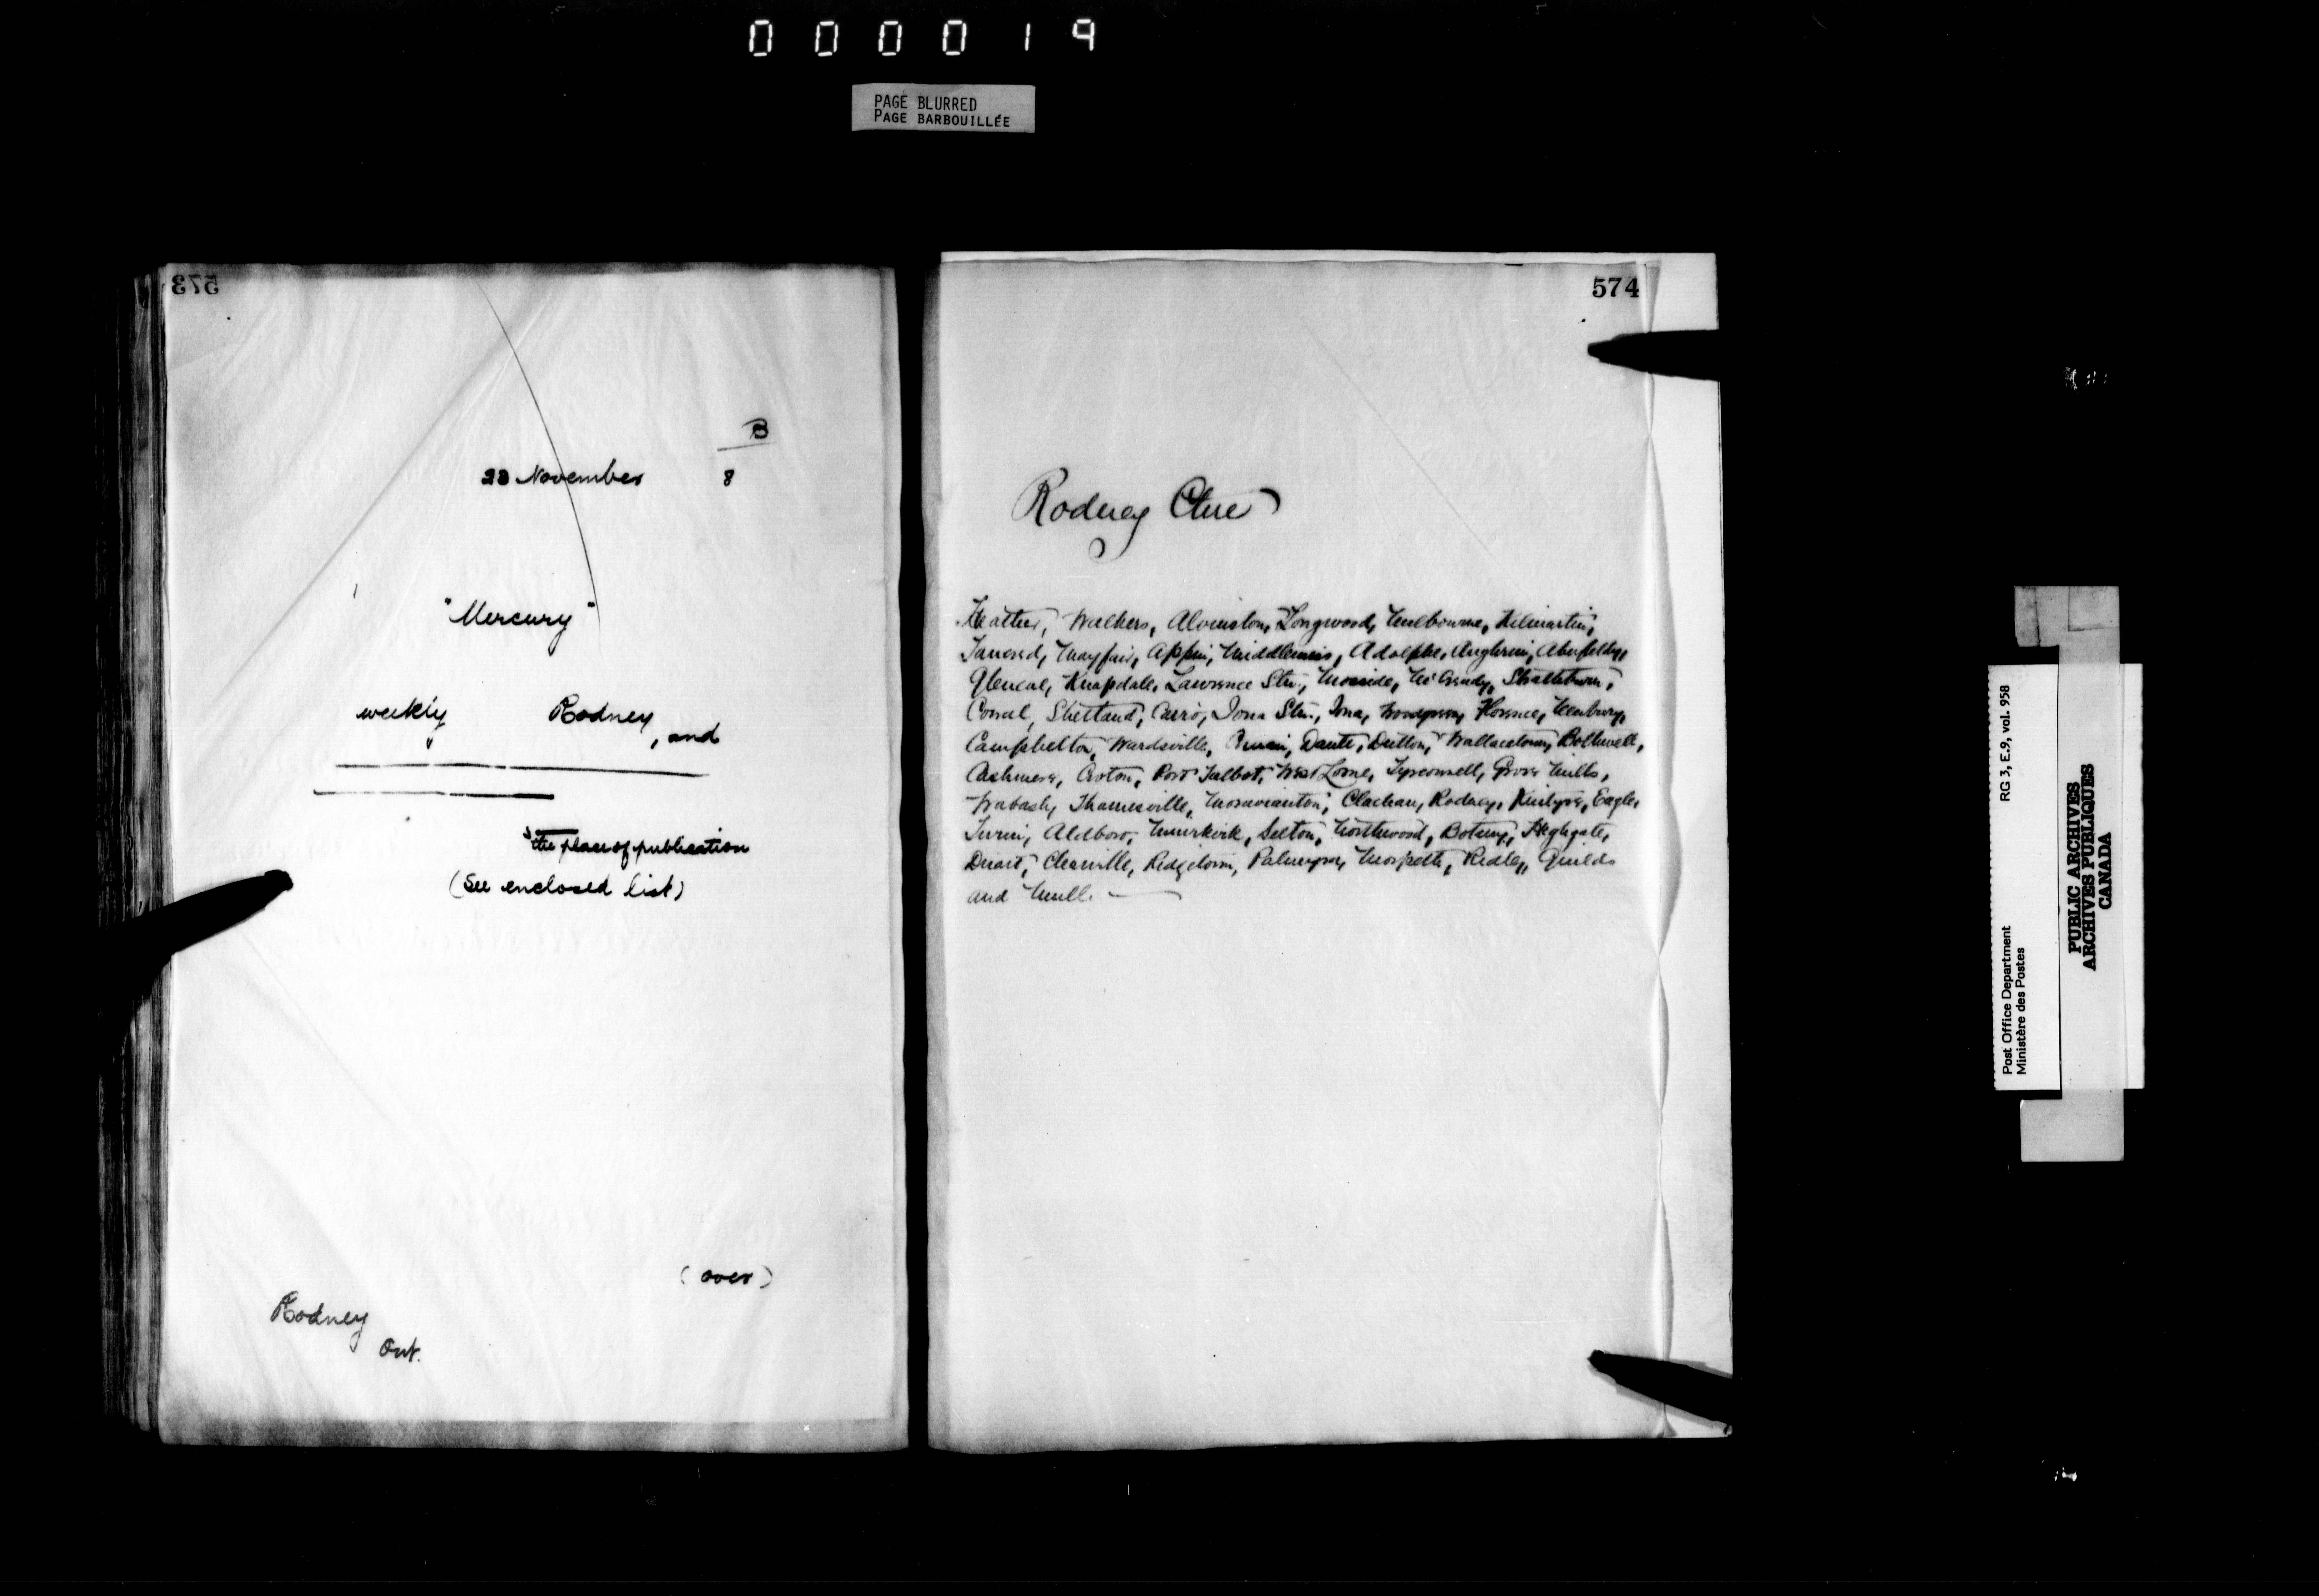 000019
PAGE BLURRED
PAGE BARBOUILLÉE
573
B
23 November 8
"Mercury"
weekly Rodney, and
the place of publication
(See enclosed list)
(over)
Rodney
Ont.
574
Rodney
Walkers, Alvinston, Longwood, Melbourne, Kilmartin,
Tancred, Mayfair, Appin, Middlemiss, Adolphe, Aughrim, Aberfeldy,
Glencoe, Knapdale, Lawrence Stn., Mosside, McCready, Strathburn,
Shetland, Cairo, Iona Stn., Iona, Florence, Newbury,
Campbelton, Wardsville, Dante, Dutton, Wallacetown, Bothwell,
Cashmere, Croton, Port Talbot, West Lorne, Tyrconnell, Grove Mills,
Wabash, Thamesville, Moraviantown, Clachan, Rodney, Kintyre, Eagle,
Turin, Aldboro, Muirkirk, Selton, Northwood, Botany, Highgate,
Duart, Clearville, Ridgetown, Palmyra, Morpeth, Ridley, Guilds
and Mull.
Post Office Department
Ministère des Postes
RG 3, E.9, vol. 958
PUBLIC ARCHIVES
ARCHIVES PUBLIQUES
CANADA